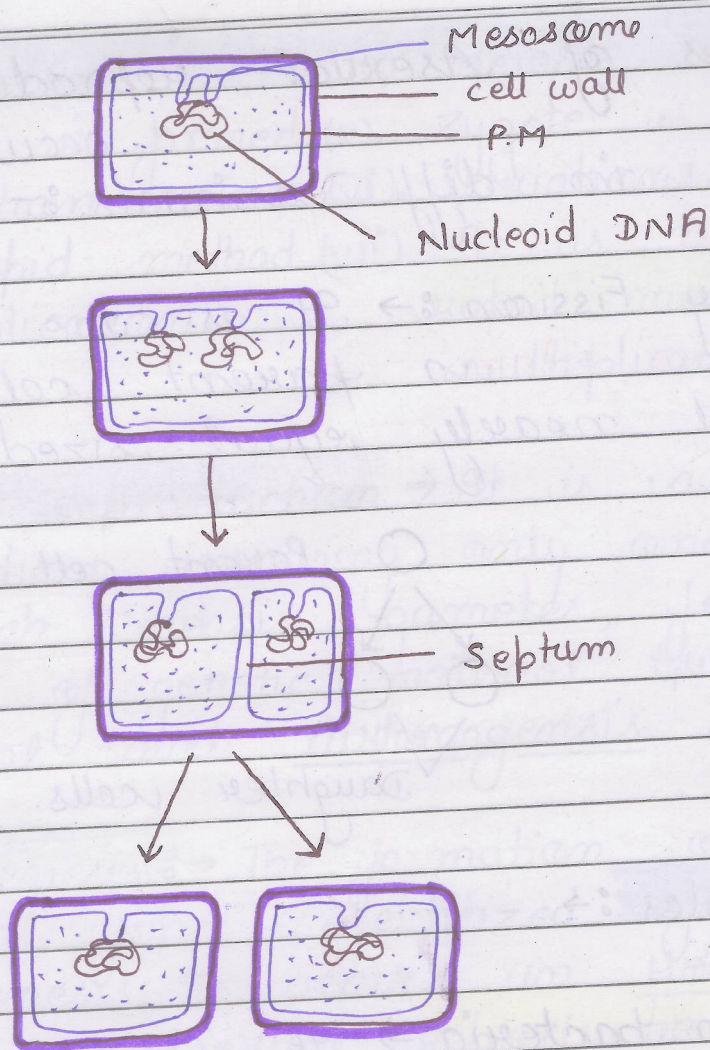 Mesosome
cell wall
P.M
Nucleoid DNA
Septum